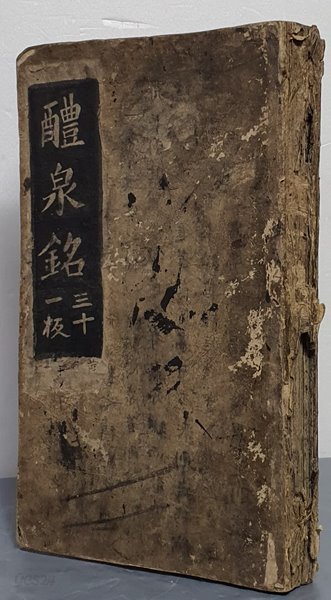 醴泉銘
三十
一板
YES24